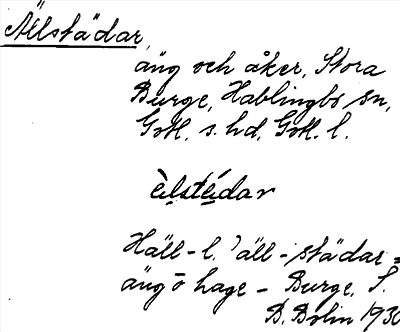 Ällstädar,
äng och åker, Stora
Burge, Hablingbo sn,
Gotl. s. hd, Gotl. l.
èlstédar
Häll- l. 'äll-städar =
äng o hage - Burge, S.
D. Bolin 1930